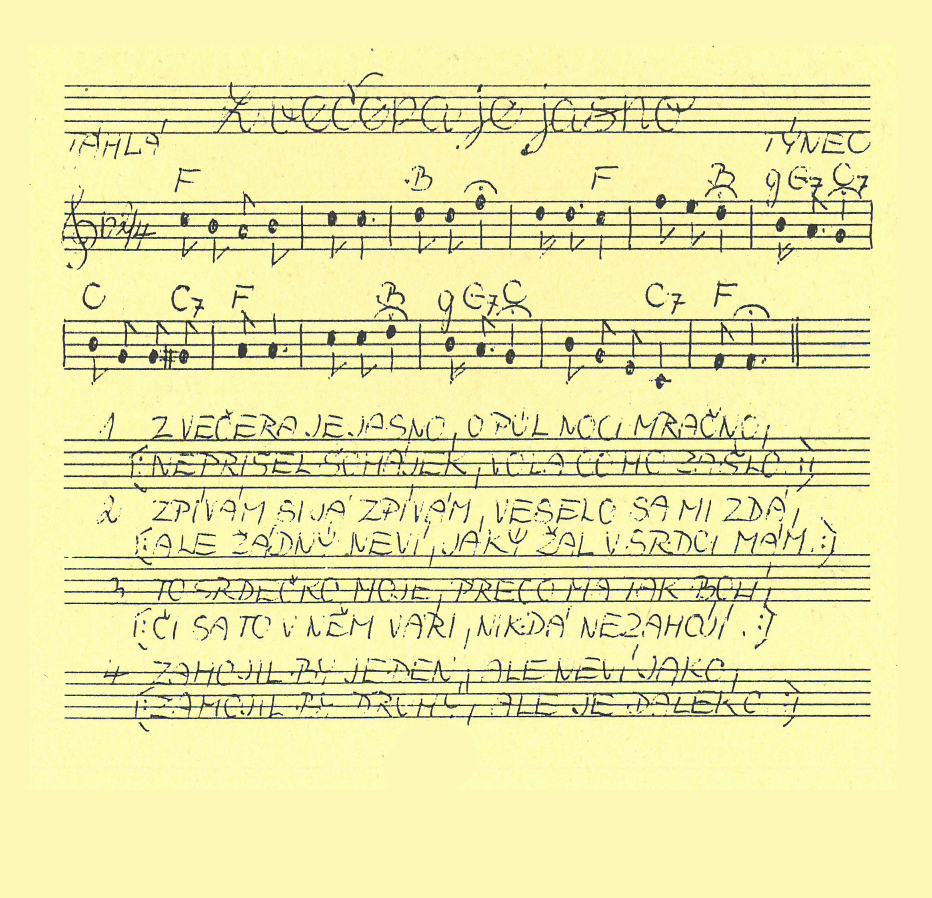 Zvečera je jasno
TÁHLÁ TÝNEC
F B F B g G7 C7
2/4
C C7 F B g G7 C C7 F
1 ZVEČERA JE JASNO, O PŮL NOCI MRAČNO,
[: NEPŘIŠEL ŠOHAJEK, VOLA CO HO ZAŠLO :]
2 ZPÍVÁM SI JÁ ZPÍVÁM, VESELO SA MI ZDÁ,
[: ALE ŽÁDNÝ NEVÍ, JAKÝ ŽAL V SRDCI MÁM. :]
3 TO SRDEČKO MOJE, PRECO MA TAK BOLÍ,
[: ČI SA TO V NĚM VAŘÍ, NIKDÁ NEZAHOJÍ. :]
4 ZAHOJIL BY JEDEN, ALE NEVÍ JAKO,
[: ZAHOJIL BY DRUHÝ, ALE JE DALEKO :]